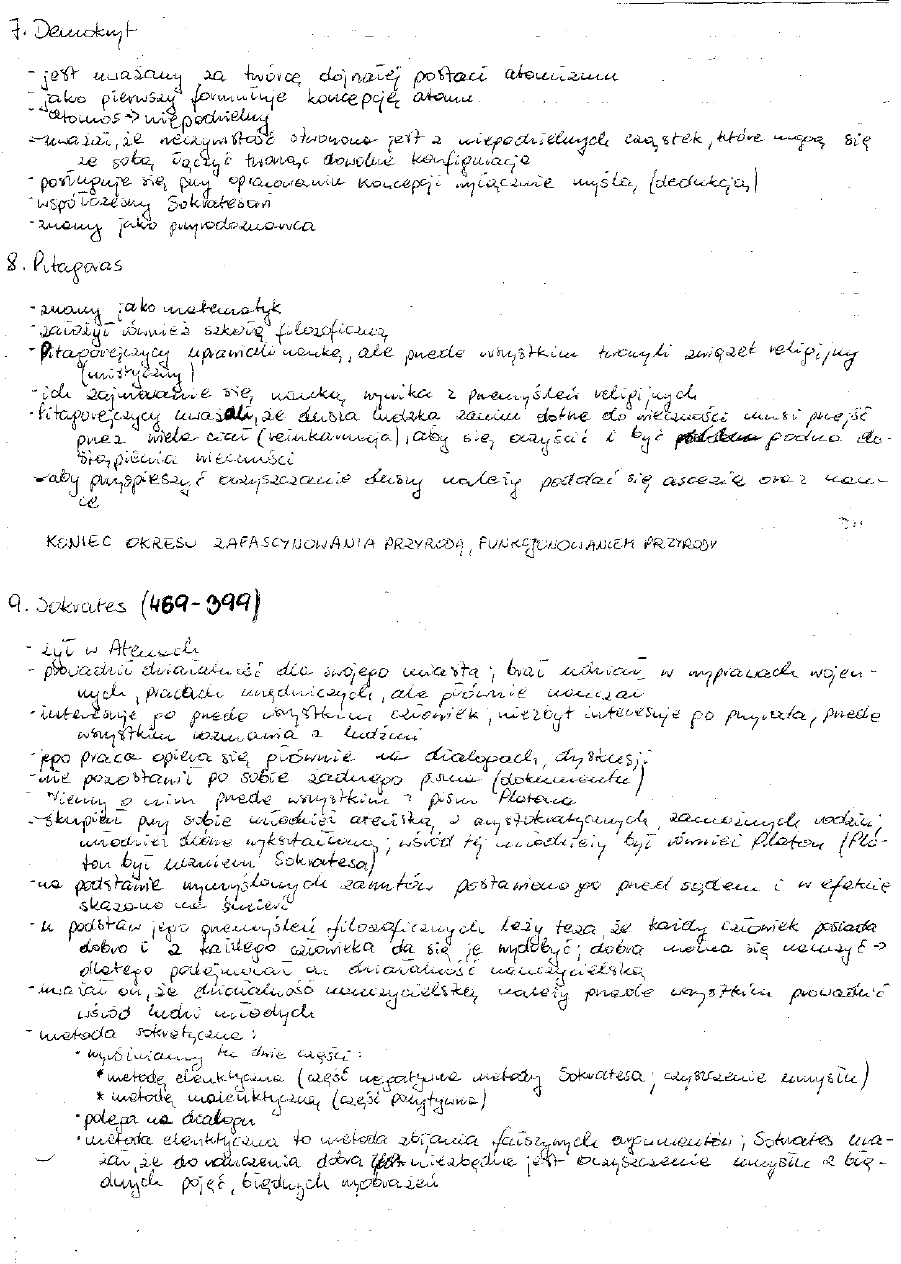 7. Demokryt
- jest uważany za twórcę dojrzałej postaci atomizmu
- jako pierwszy formułuje koncepcję atomu
- atomos -> niepodzielny
- uważał, że rzeczywistość stworzona jest z niepodzielnych cząstek, które mogą się
ze sobą łączyć tworząc dowolne konfiguracje
- posługuje się przy opracowaniu koncepcji wyłącznie myślą (dedukcją)
- współczesny Sokratesowi
- znany jako przyrodoznawca
8. Pitagoras
- znany jako matematyk
- założył również szkołę filozoficzną
- Pitagorejczycy uprawiali naukę, ale przede wszystkim tworzyli związek religijny
(mistyczny)
- ich zajmowanie się nauką wynika z przemyśleń religijnych
- Pitagorejczycy uważali, że dusza ludzka zanim dotrze do wieczności musi przejść
przez wiele ciał (reinkarnacja), aby się oczyścić i być godna do-
stąpienia wieczności
- aby przyspieszyć oczyszczanie duszy należy poddać się ascezie oraz nau-
ce
KONIEC OKRESU ZAFASCYNOWANIA PRZYRODĄ, FUNKCJONOWANIEM PRZYRODY
9. Sokrates (469-399)
- żył w Atenach
- prowadził działalność dla swojego miasta; brał udział w wyprawach wojen-
nych, pracach urzędniczych, ale głównie nauczał
- interesuje go przede wszystkim człowiek; niezbyt interesuje go przyroda; przede
wszystkim rozmawia z ludźmi
- jego praca opiera się głównie na dialogach, dyskusji
- nie pozostawił po sobie żadnego pisma (dokumentu)
- Wiemy o nim przede wszystkim z pism Platona
- skupiał przy sobie młodzież ateńską z arystokratycznych, zamożnych rodzin;
młodzież dobrze wykształconą; wśród tej młodzieży był również Platon (Pla-
ton był uczniem Sokratesa)
- na podstawie wymyślonych zarzutów postawiono go przed sądem i w efekcie
skazano na śmierć
- u podstaw jego przemyśleń filozoficznych leży teza, że każdy człowiek posiada
dobro i z każdego człowieka da się je wydobyć; dobra można się nauczyć ->
dlatego podejmował on działalność nauczycielską
- uważał on, że działalność nauczycielską należy przede wszystkim prowadzić
wśród ludzi młodych
- metoda sokratyczna:
• wyróżniamy tu dwie części:
* metodę elenktyczną (część negatywna metody Sokratesa; czyszczenie umysłu)
* metodę maieutyczną (część pozytywna)
• polega na dialogu
• metoda elenktyczna to metoda zbijania fałszywych argumentów; Sokrates uwa-
żał, że do nauczenia dobra niezbędne jest oczyszczenie umysłu z błę-
dnych pojęć, błędnych wyobrażeń